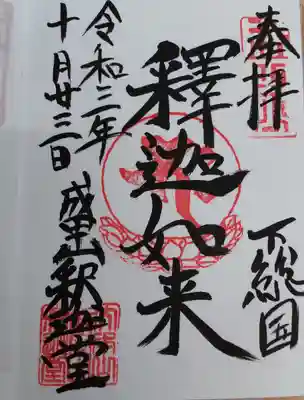 奉拝
下総国
釋迦如来
令和三年
十月廿三日
盛里釈迦堂